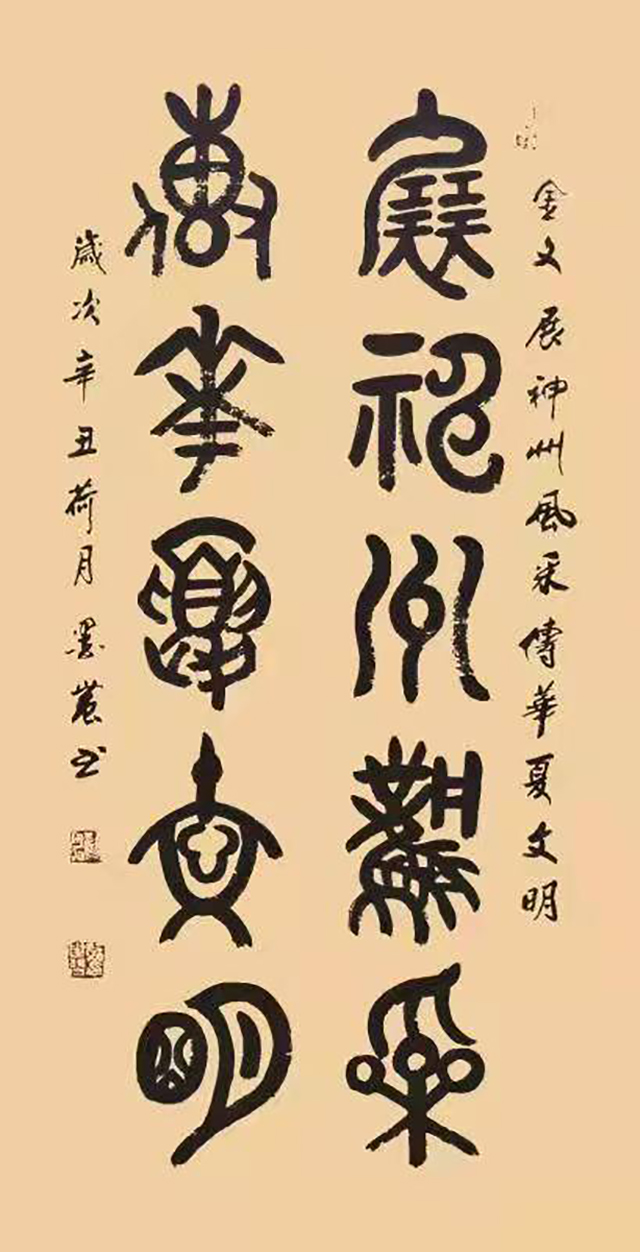 金文展神州風采傳華夏文明
展神州風采
傳華夏文明
歲次辛丑荷月墨书